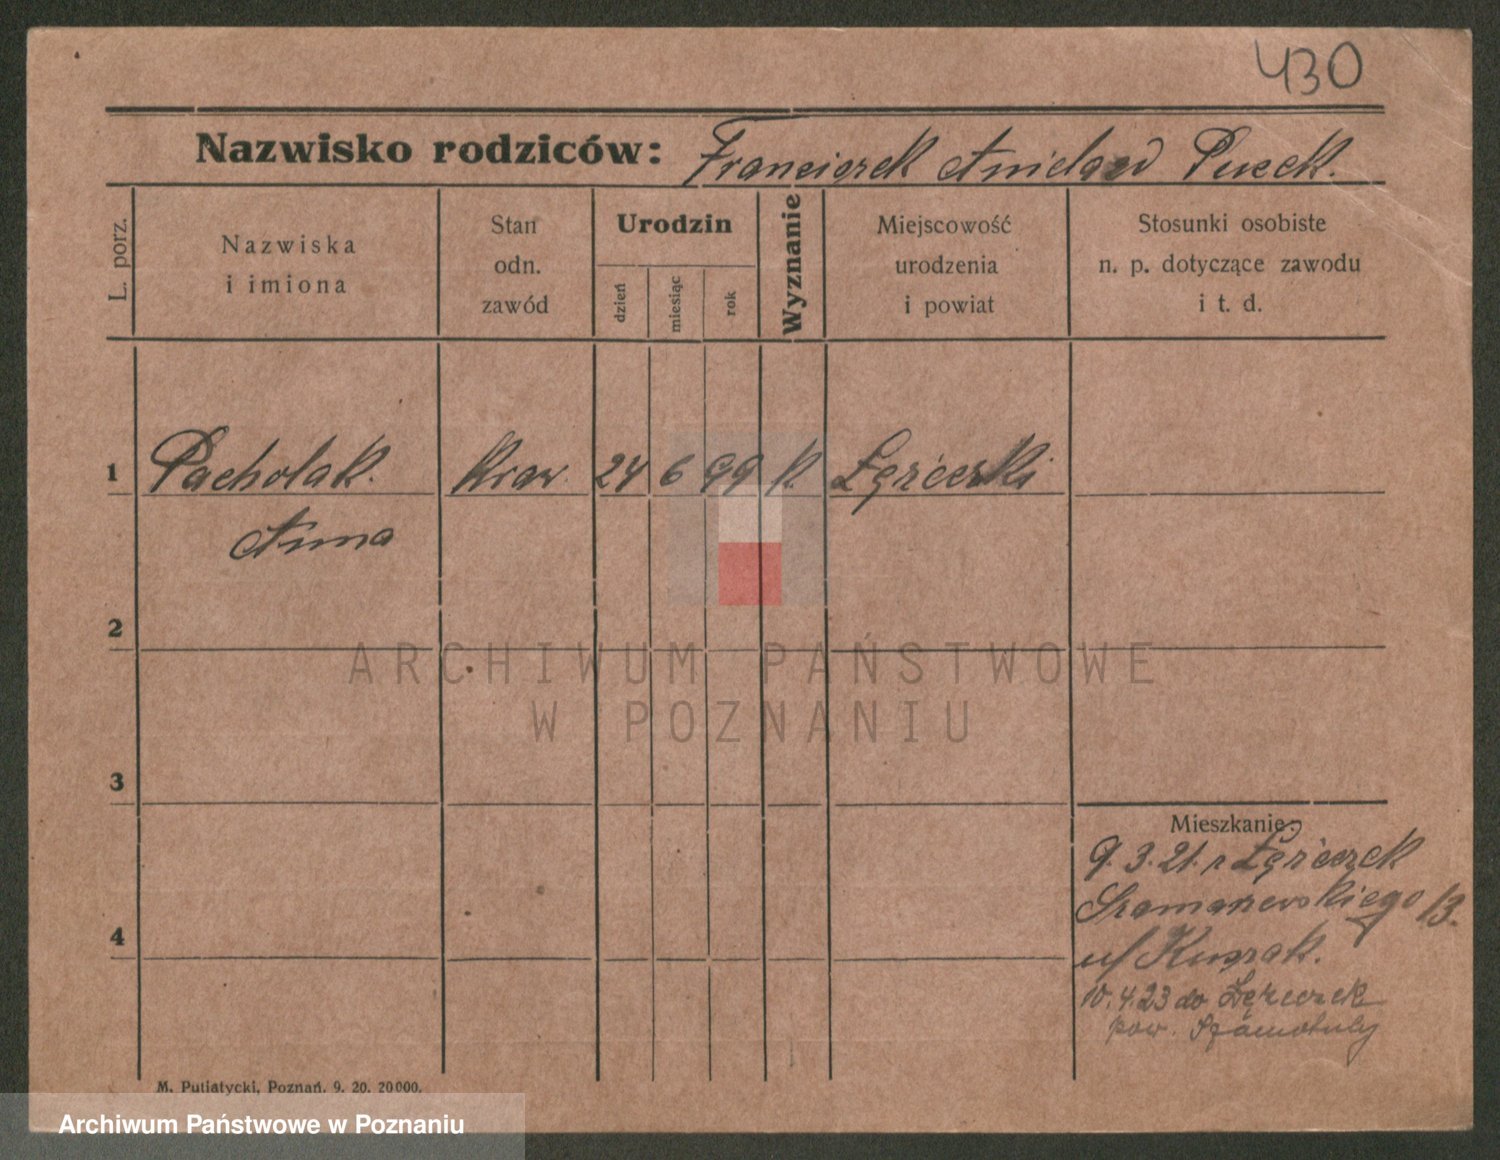 430
Nazwisko rodziców: Franciszek Aniela
L. porz.
Nazwiska
i imiona
Stan
odn.
zawód
Urodzin
dzień
miesiąc
rok
Wyznanie
Miejscowość
urodzenia
i powiat
Stosunki osobiste
n. p. dotyczące zawodu
i t. d.
1 Pacholak. Kraw. 24 6 99 k.
Anna
2
3
4
Mieszkanie:
9. 3. 21. z
Szamarzewskiego 13.
u/
10. 4. 23 do
pow. Szamotuly
M. Putiatycki, Poznań. 9. 20. 20000.
ARCHIWUM PAŃSTWOWE
W POZNANIU
Archiwum Państwowe w Poznaniu